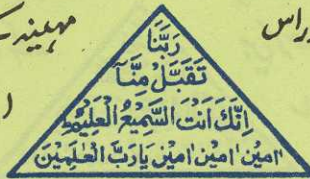 مہینہ
راس
رَبَّنَا
تَقَبَّلْ مِنَّآ
اِنَّكَ اَنْتَ السَّمِيْعُ الْعَلِيْمُ
اٰمِيْن اٰمِيْن اٰمِيْن يَارَبَّ الْعٰلَمِيْنَ